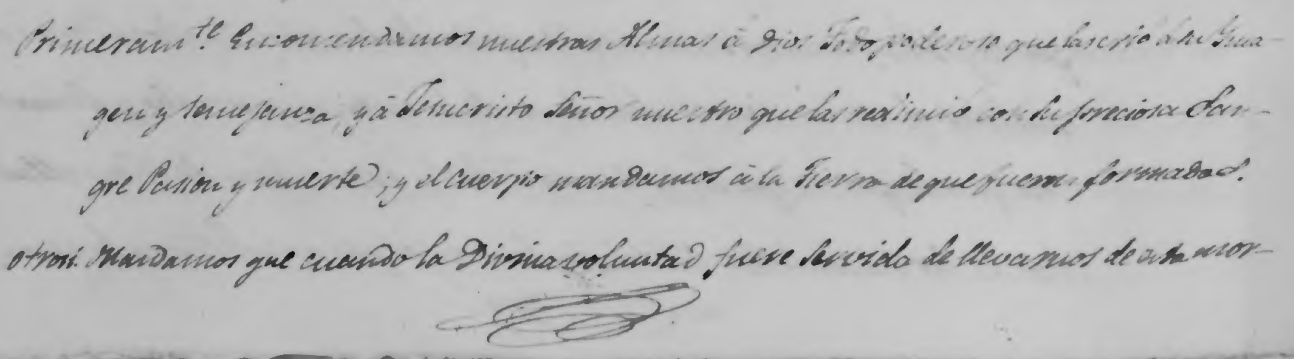 Primeram.te Encomendamos nuestras Almas à Dios Todopoderoso que las crió à su Ima-
gen y semejanza, y à Jesucristo Señor nuestro que las redimió con su preciosa San-
gre Pasion y muerte; y el cuerpo mandamos à la Tierra de que fueron formados.
otrosi. Mandamos que cuando la Divina voluntad fuere servida de llevarnos de esta mor-